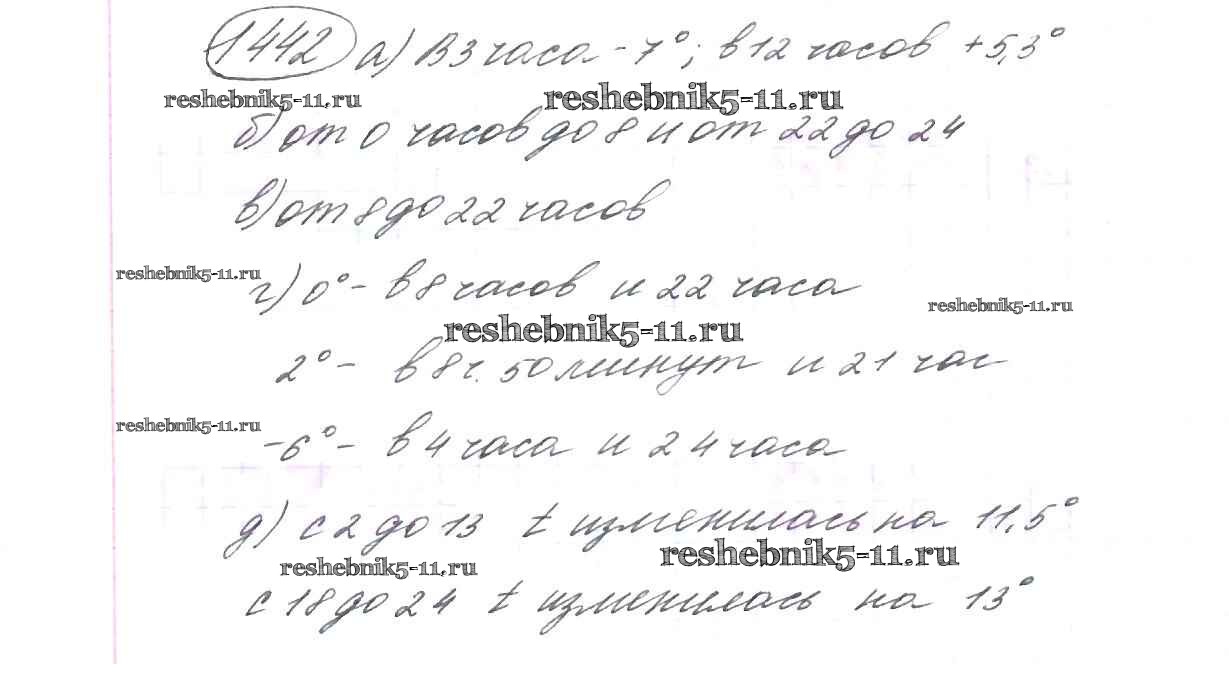 1442 а) В 3 часа -7°; в 12 часов +5,3°
reshebnik5-11.ru reshebnik5-11.ru
б) от 0 часов до 8 и от 22 до 24
в) от 8 до 22 часов
reshebnik5-11.ru
г) 0° - в 8 часов и 22 часа
reshebnik5-11.ru
reshebnik5-11.ru
2° - в 8 ч. 50 минут и 21 час
reshebnik5-11.ru
-6° - в 4 часа и 24 часа
д) с 2 до 13 t изменилась на 11,5°
reshebnik5-11.ru reshebnik5-11.ru
с 18 до 24 t изменилась на 13°